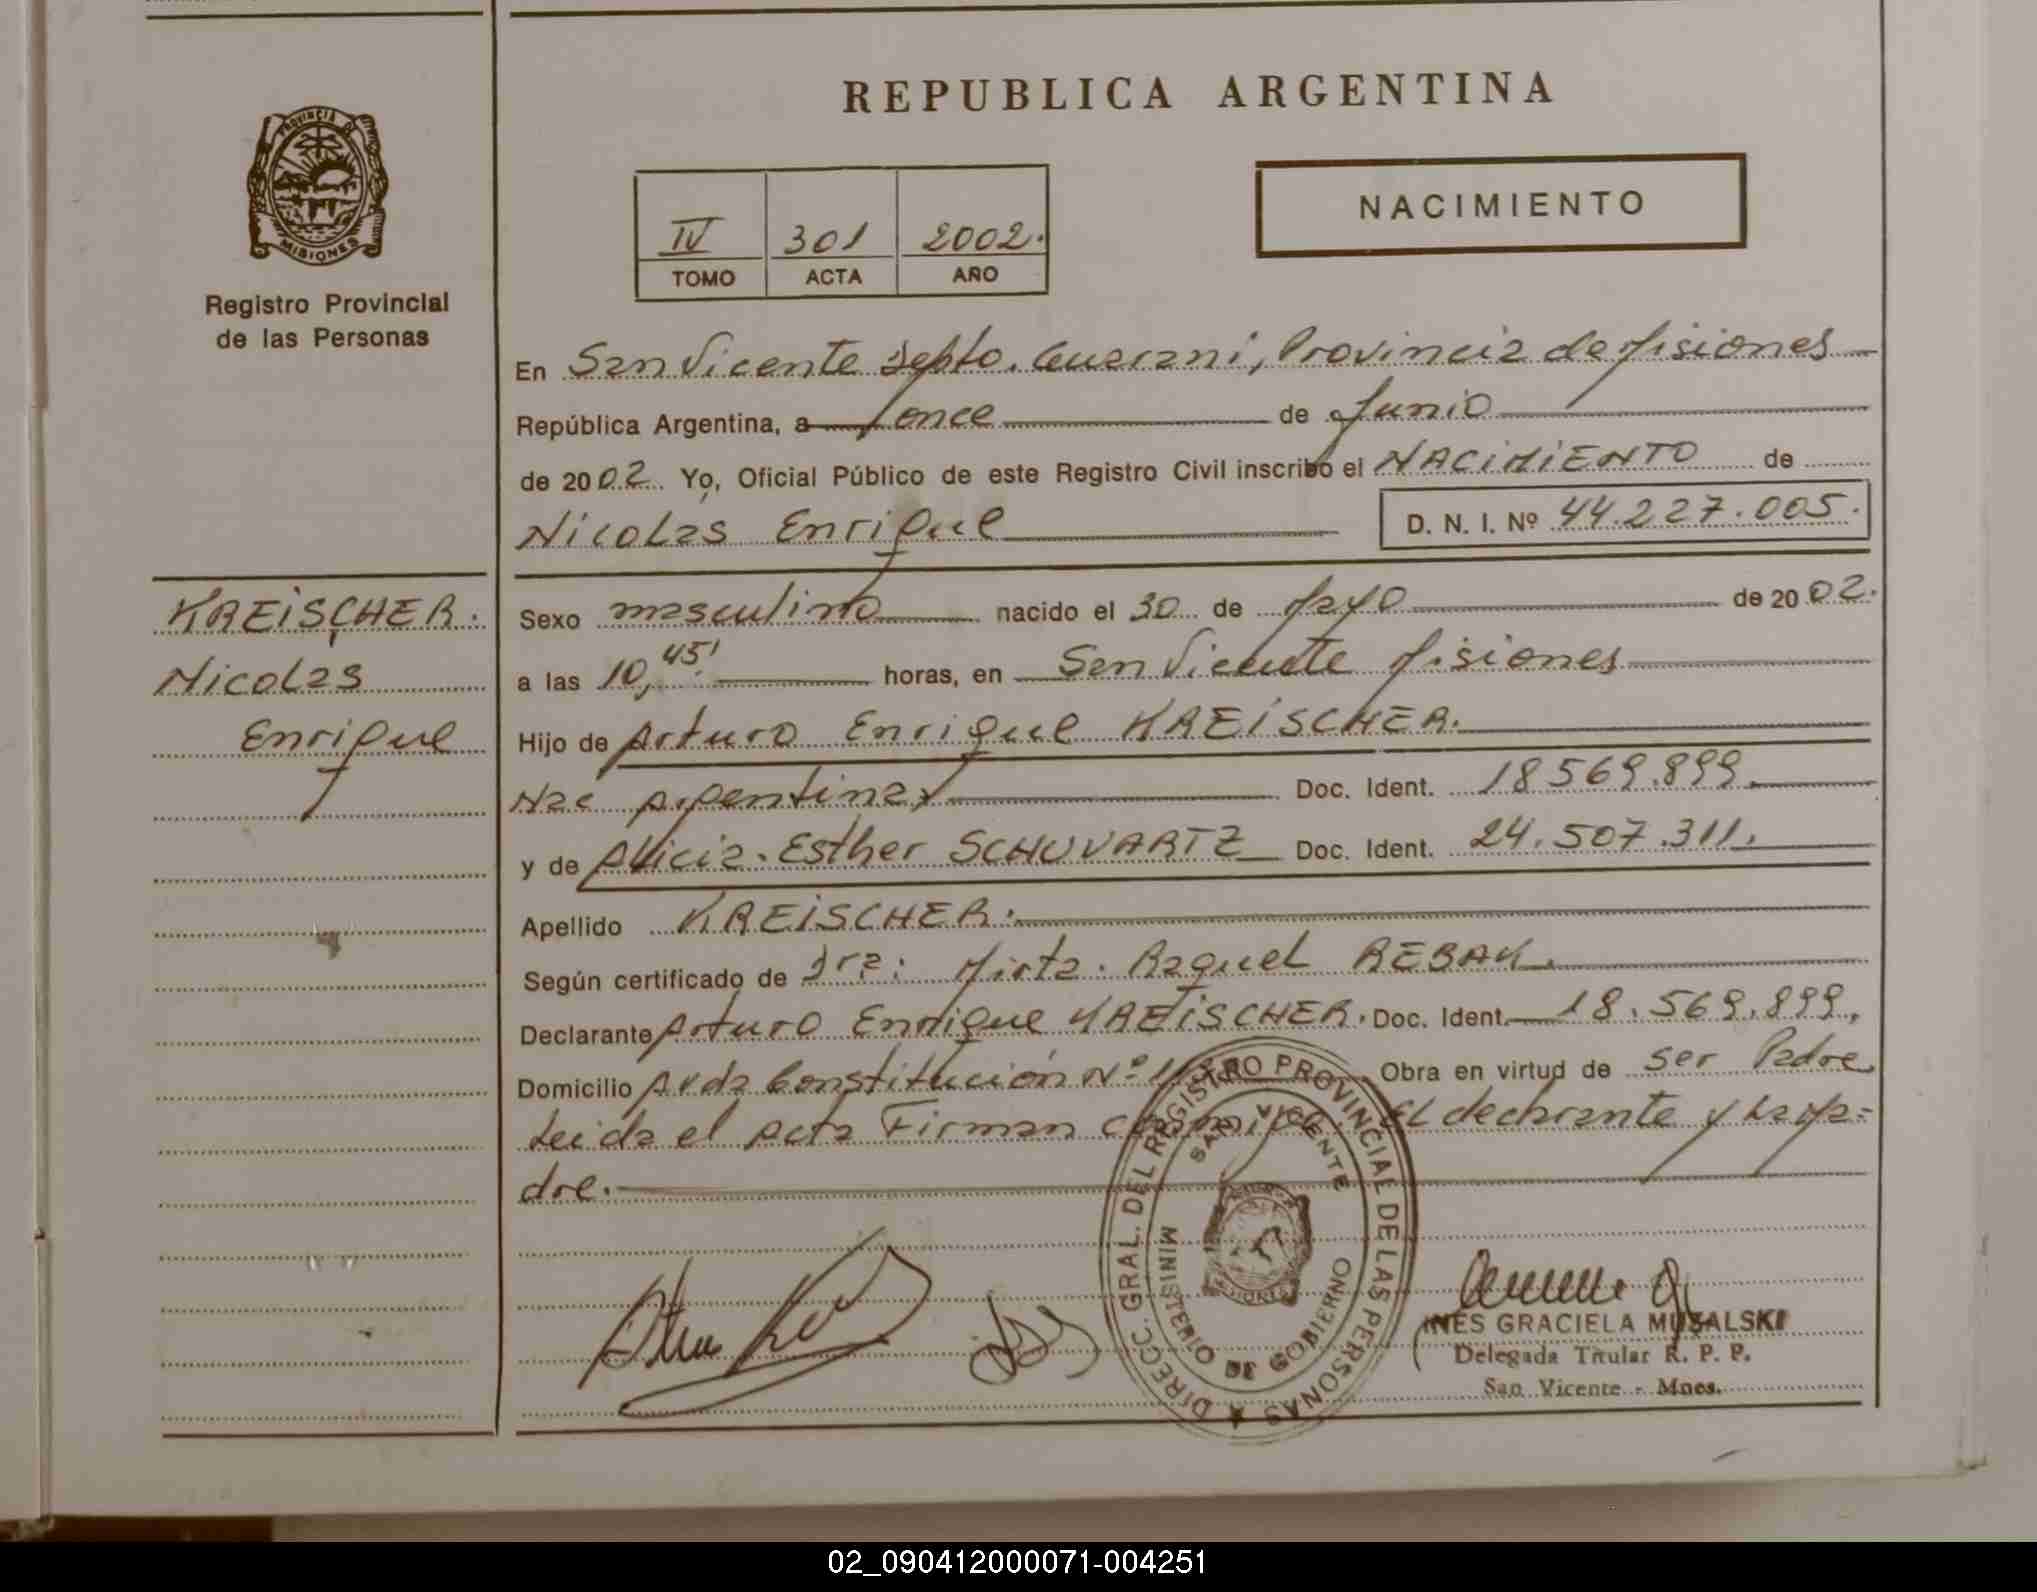 REPUBLICA ARGENTINA
PROVINCIA DE
MISIONES
Registro Provincial
de las Personas
IV 301 2002.
TOMO ACTA AÑO
NACIMIENTO
En San Vicente Depto. Guarani, Provincia de Misiones
República Argentina, a once de Junio
de 2002. Yo, Oficial Público de este Registro Civil inscribo el NACIMIENTO de
Nicolas Enrique D. N. I. Nº 44.227.005.
KREiSCHER.
Nicolas
Enrique
Sexo masculino nacido el 30 de Mayo de 2002.
a las 10,45' horas, en San Vicente Misiones
Hijo de Arturo Enrique KREiSCHER.
Nac Argentina y Doc. Ident. 18569.899.
y de Alicia. Esther SCHUVARTZ Doc. Ident. 24.507.311.
Apellido KREiSCHER.
Según certificado de Dra: Mirta. Raquel REBAK.
Declarante Arturo Enrique KREiSCHER. Doc. Ident. 18.569.899.
Domicilio Avda Constitución Nº Obra en virtud de ser Padre
Leida el acta Firman conmigo El declarante y La Ma=
dre.
DIRECC. GRAL. DEL REGISTRO PROVINCIAL DE LAS PERSONAS
SAN VICENTE
MINISTERIO DE GOBIERNO
INES GRACIELA MUSALSKI
Delegada Titular R. P. P.
San Vicente - Mnes.
02_090412000071-004251